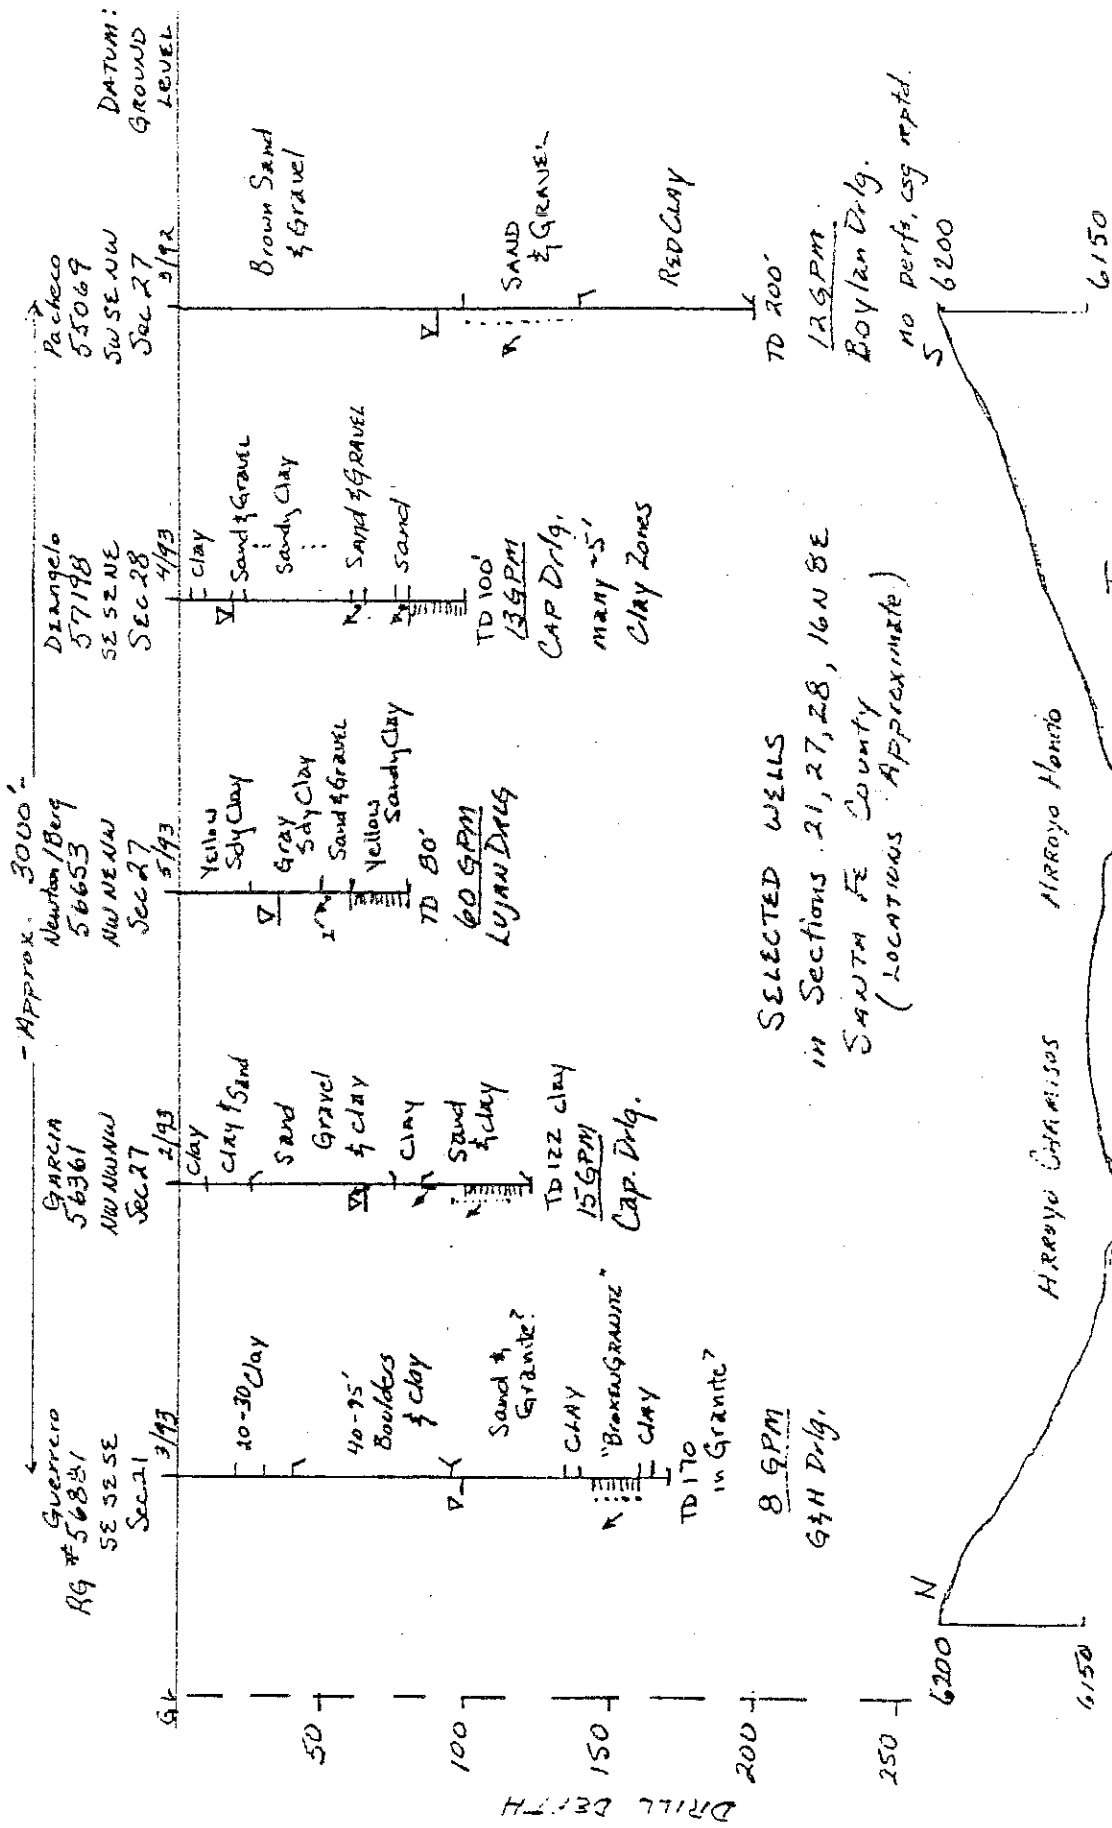 - Approx. 3000'-
Guerrero
RG # 56881
SE SE SE
Sec 21 3/93
20-30 Clay
40-95'
Boulders
& Clay
Sand &
Granite?
CLAY
"BROKEN GRANITE"
CLAY
TD 170
in Granite?
8 GPM
G&H Drlg.
GARCIA
56361
NW NW NW
Sec 27 2/93
Clay
Clay & Sand
Sand
Gravel
& Clay
Clay
Sand
& Clay
TD 122 Clay
15 GPM
Cap. Drlg.
Newton/Berg
56653
NW NE NW
Sec 27 5/93
Yellow
Sdy Clay
Gray
Sdy Clay
Sand & Gravel
Yellow
Sandy Clay
TD 80'
60 GPM
LUJAN DRLG
DeAngelo
57198
SE SE NE
SEC 28 4/93
Clay
Sand & Gravel
Sandy Clay
SAND & GRAVEL
Sand
TD 100'
13 GPM
CAP Drlg.
many ~5'
Clay Zones
Pacheco
55069
SW SE NW
Sec 27 3/92
Brown Sand
& Gravel
SAND
& GRAVEL
RED CLAY
TD 200'
12 GPM
Boylan Drlg.
no perfs, csg reptd.
DATUM:
GROUND
LEVEL
GL
50
100
150
200
250
DRILL DEPTH
SELECTED WELLS
in Sections 21, 27, 28, 16N 8E
SANTA FE County
(LOCATIONS Approximate)
N
6200
6150
ARROYO CHAMISOS
ARROYO Hondo
S
6200
6150